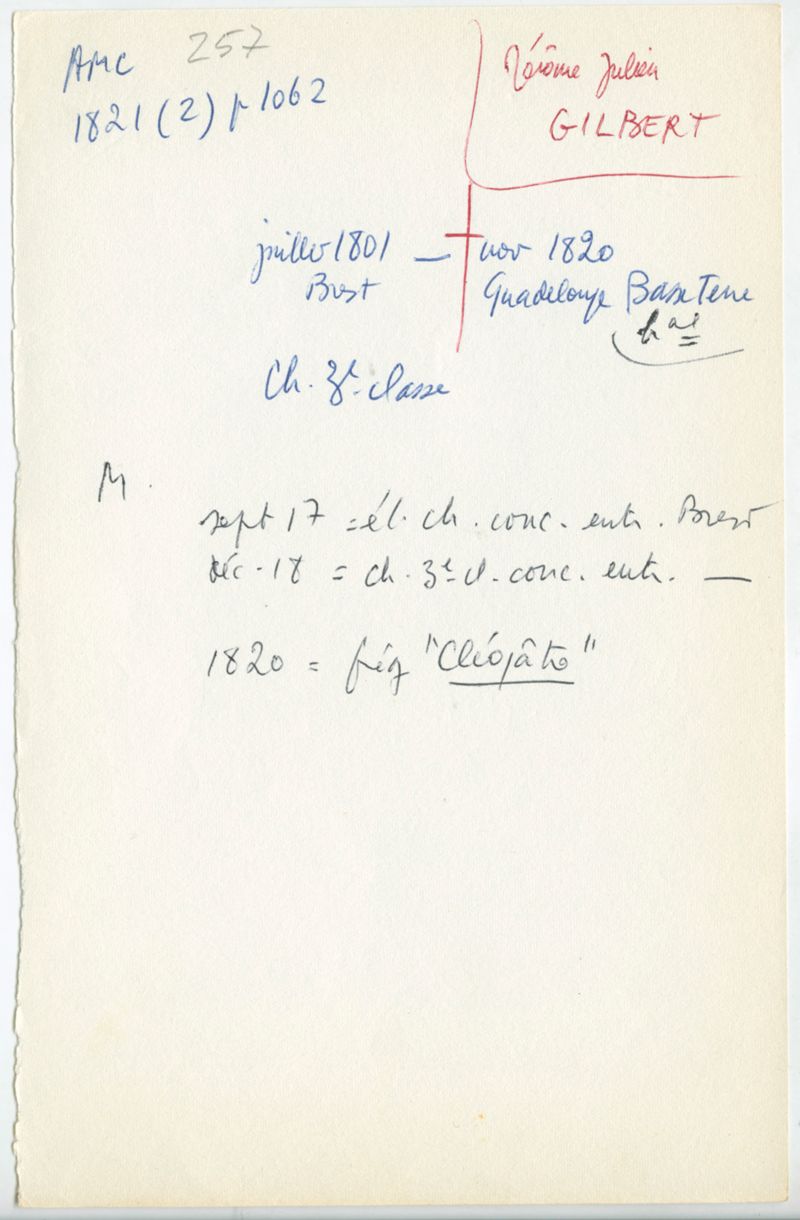 AMC 257
1821 (2) p 1062
Jérôme Julien
GILBERT
juillet 1801 — † nov 1820
Brest
Guadeloupe Basse Terre
hal
Ch. 3e classe
M.
sept 17 = él. ch. conc. entr. Brest
déc. 18 = ch. 3e cl. conc. entr. —
1820 = frég "Cléopâtre"